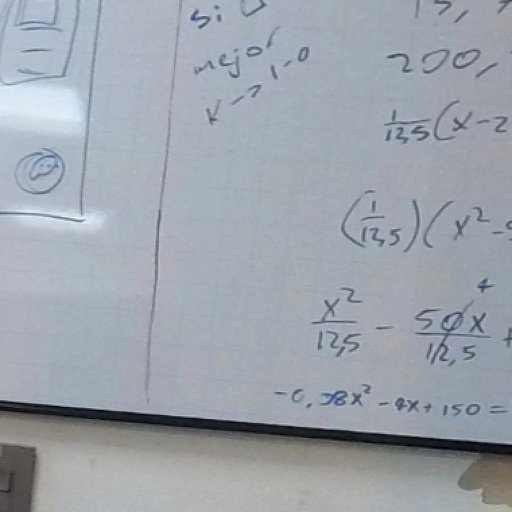 si
mejor
K -> 1-0
15,
200,
1/12,5 (x-2
(1/12,5)(x²-
x²/12,5 - 50x/12,5 +
4
-0,08x² - 4x + 150 =